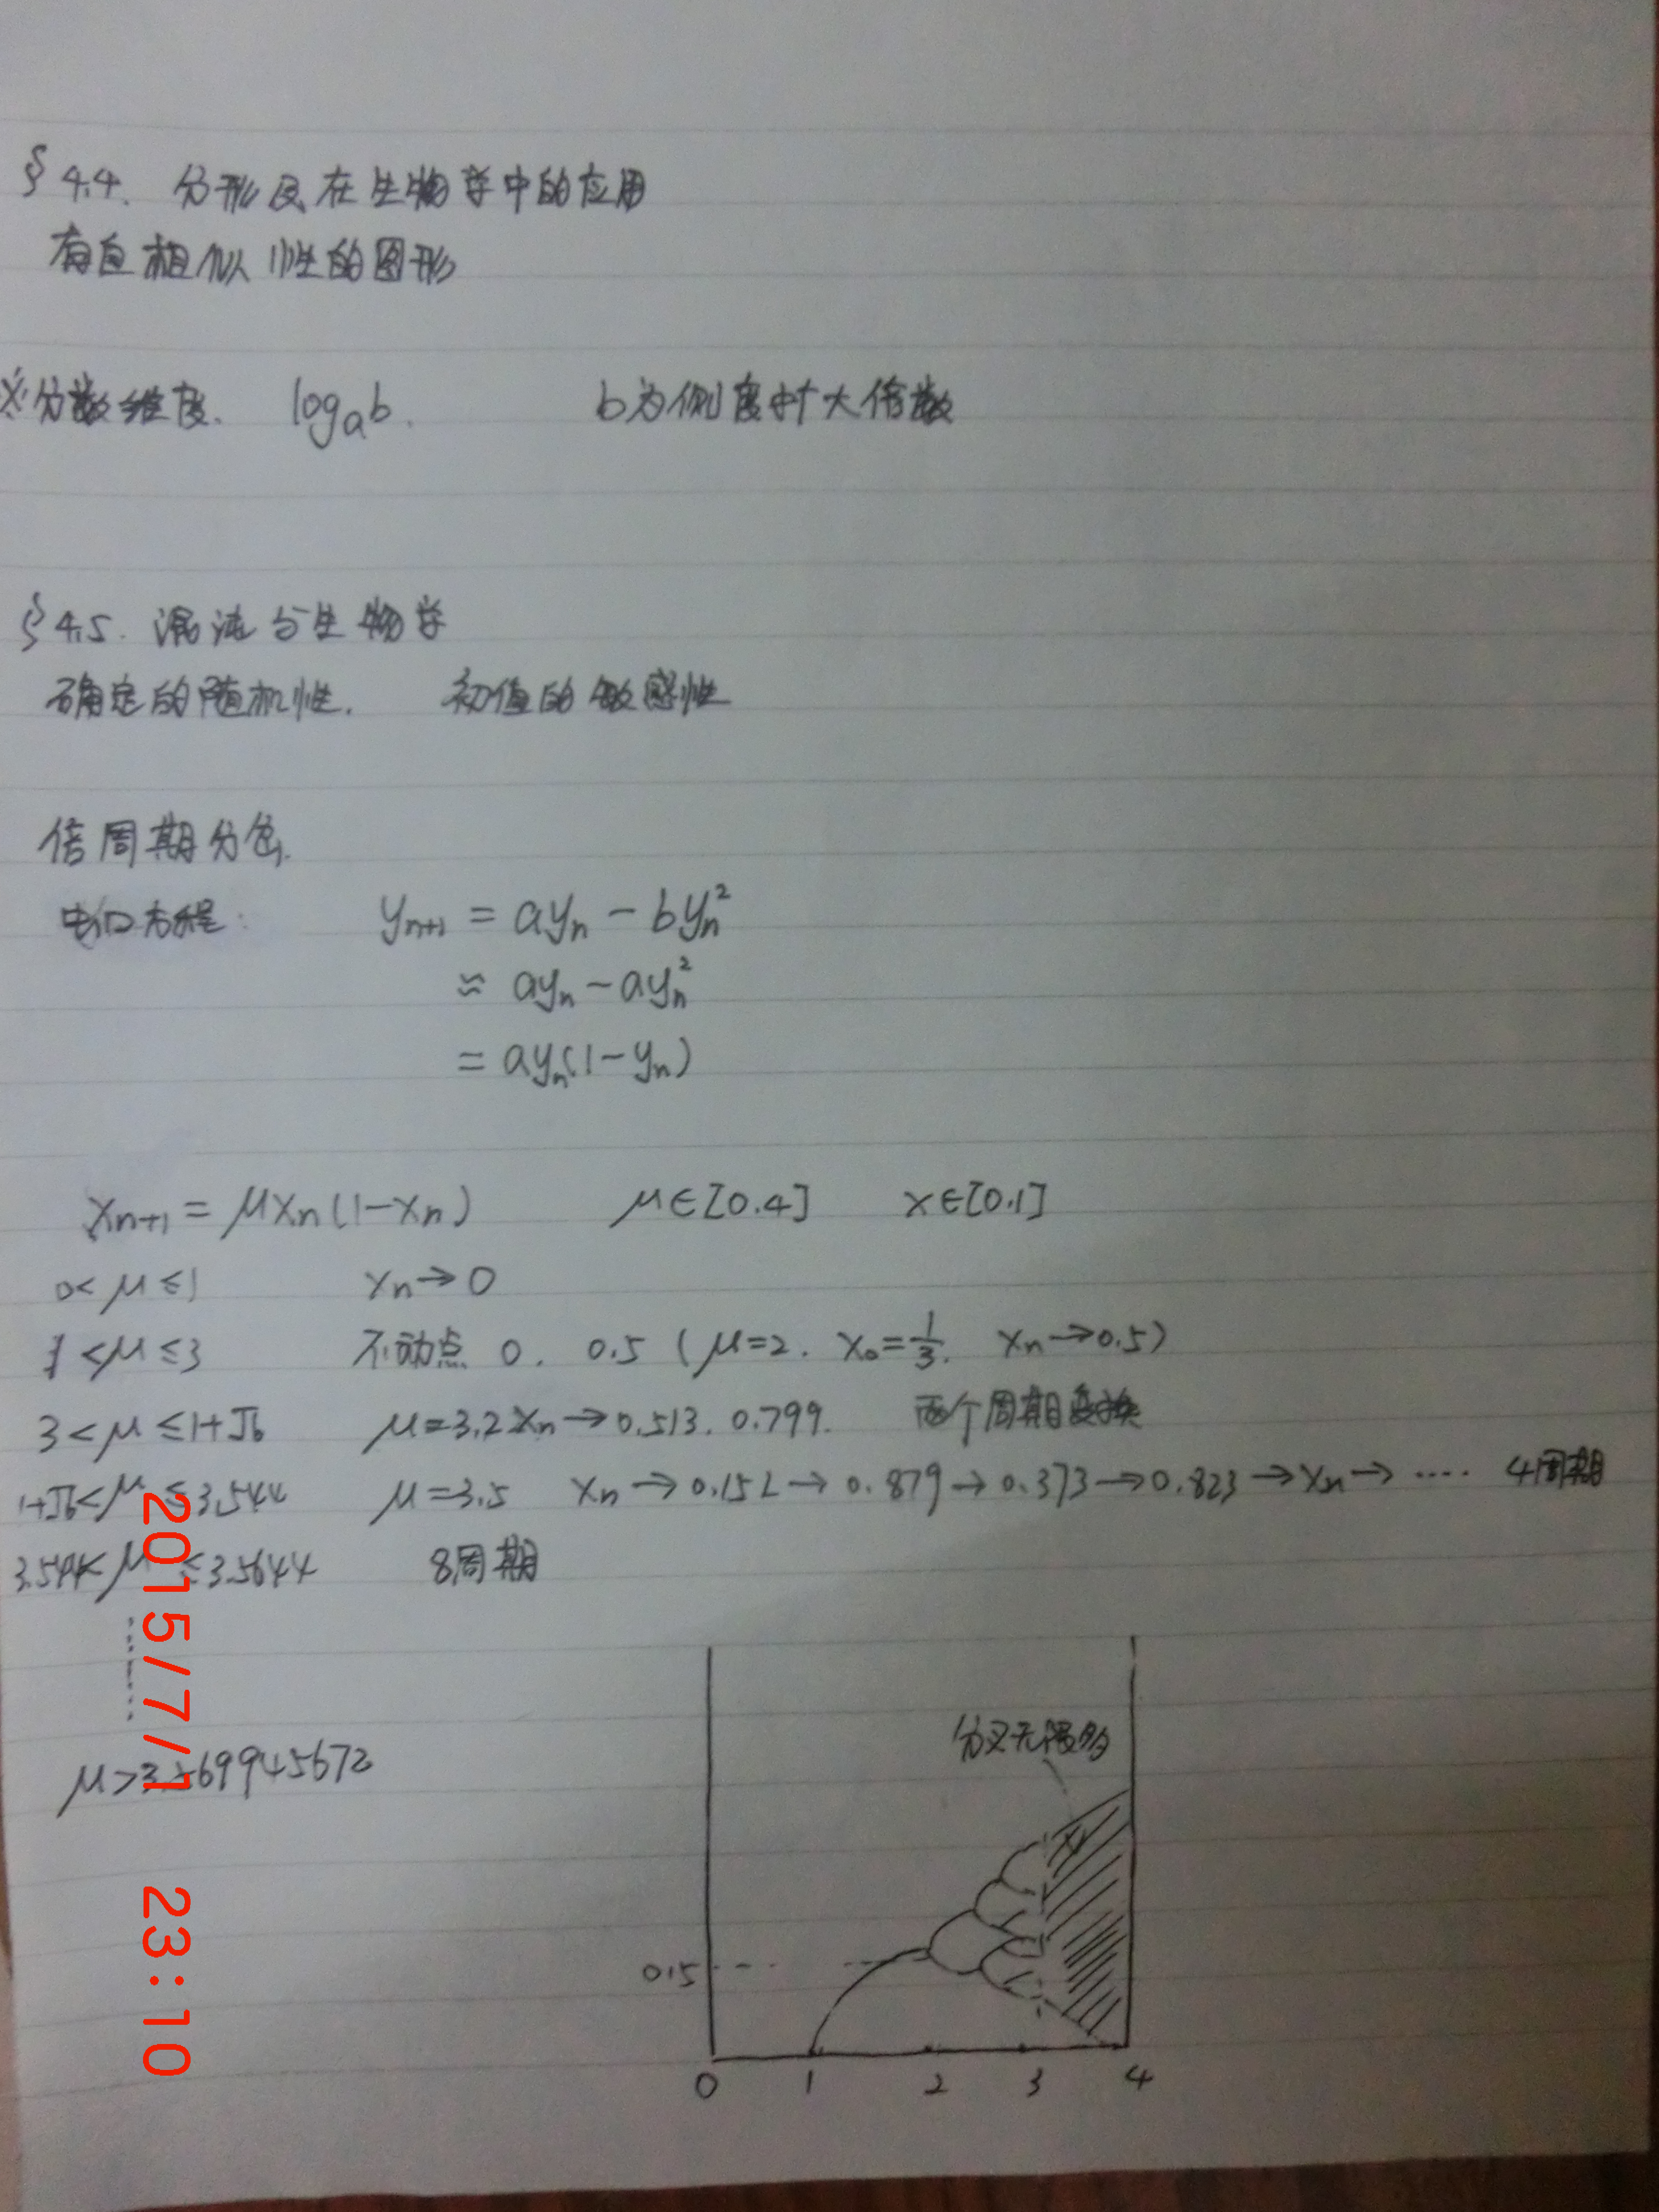 §4.4. 分形及在生物学中的应用
有自相似性的图形
※分数维度. logₐb. b为测度扩大倍数
§4.5. 混沌与生物学
确定的随机性. 初值的敏感性
倍周期分岔.
虫口方程: yₙ₊₁ = ayₙ - byₙ²
≈ ayₙ - ayₙ²
= ayₙ(1-yₙ)
xₙ₊₁ = μxₙ(1-xₙ) μ∈[0.4] x∈[0.1]
0<μ≤1 xₙ→0
1<μ≤3 不动点 0. 0.5 (μ=2. x₀=1/3. xₙ→0.5)
3<μ≤1+√6 μ=3.2 xₙ→0.513. 0.799. 两个周期变换
1+√6<μ≤3.544 μ=3.5 xₙ→0.152→0.879→0.373→0.823→xₙ→‥‥ 4周期
3.544<μ≤3.5644 8周期
μ>3.569945672
分叉无限多
0.5
0 1 2 3 4
2015/7/1 23:10